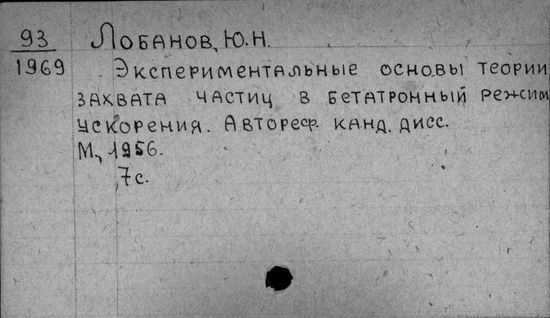 93
1969
Лобанов, Ю.Н.
Экспериментальные основы теории
захвата частиц в бетатронный режим
ускорения. Автореф. канд. дисс.
М., 1956.
7с.